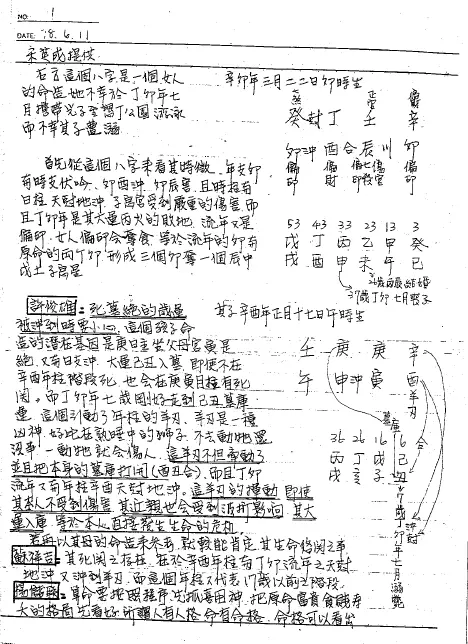 NO: 1
DATE: 78.6.11
宋英成提供
右立這個八字是一個女人
的命造她不幸於丁卯年七
月攜帶兒子至夢丁公園游泳
而不幸其子豊溺
辛卯年三月二二日卯時生
癸 封 丁 壬 辛
卯 沖 酉 合 辰 川 卯
偏印 偏財 偏印 七殺 傷官 偏印
首先從這個八字來看其時傲、年支卯
有時支伏吟、卯酉沖、卯辰害、且時柱有
日柱天尅地沖、子息宮受到嚴重的傷害而
且丁卯年是其大運丙火的敗地、流年又是
偏印、女人偏印會奪食、等於流年的卯有
原命的兩個卯形成三個卯奪一個辰中
戊土子息星
53 43 33 23 13 3
戊 丁 丙 乙 甲 癸
戌 酉 申 未 午 巳
37歲丁卯七月喪子
其子辛酉年正月十七日午時生
壬 庚 庚 辛
午 申 沖 寅 酉 羊刃
墓庫
36 26 16 6
丙 丁 戊 己
戌 亥 子 丑
合
沖尅
7歲丁卯年七月溺斃
：死墓絕的歲運
被沖到時要小心、這個孩子命
造的潛在基因是庚日主坐父母宮寅是
絕、又有日支沖、大運己丑入墓、即使不在
辛酉年柱階段死、也會在庚寅月柱有死
關。而丁卯年七歲剛好走到己丑墓庫
運、這個引動了年柱的羊刃、羊刃是一種
凶神、好比在熟睡中的獅子、不去動牠還
沒事、一動牠就會傷人、這羊刃不但牽動了
並且把本身的墓庫打開(酉丑合)、而且丁卯
流年又有年柱辛酉天尅地沖。這羊刃的擾動即使
其本人不受到傷害、其近親也會受到波折影響、其大
運入庫、等於本人直接發生生命的危机
若再以其母的命造來參考、就較能肯定其生命終関之事
蘇祥吉：其死関之存在、在於辛酉年柱有丁卯流年之天尅
地沖、又沖到羊刃、而這個年柱又代表17歲以前之階段。
：算命要把握程序、先抓喜用神、把原命富貴貧賤壽
夭的格局先看好、所謂人有人格、命有命格、命格可以看出